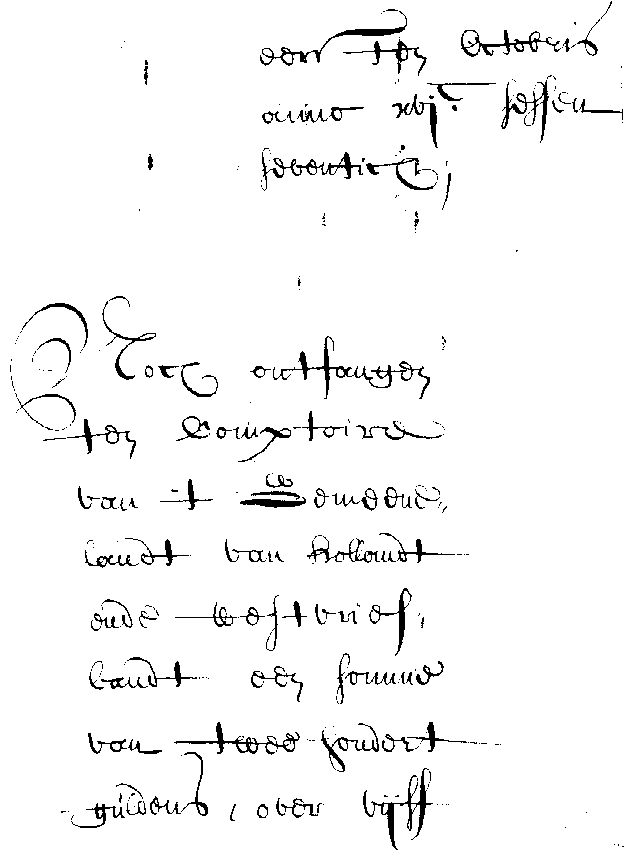 den Ten Octobris
anno xvjC. sessen
seventich,
Noch ontfangen
ten Comptoire
van 't Gemeene,
landt van hollandt
ende westvries,
landt een somme
van twee hondert
guldens, over vijff